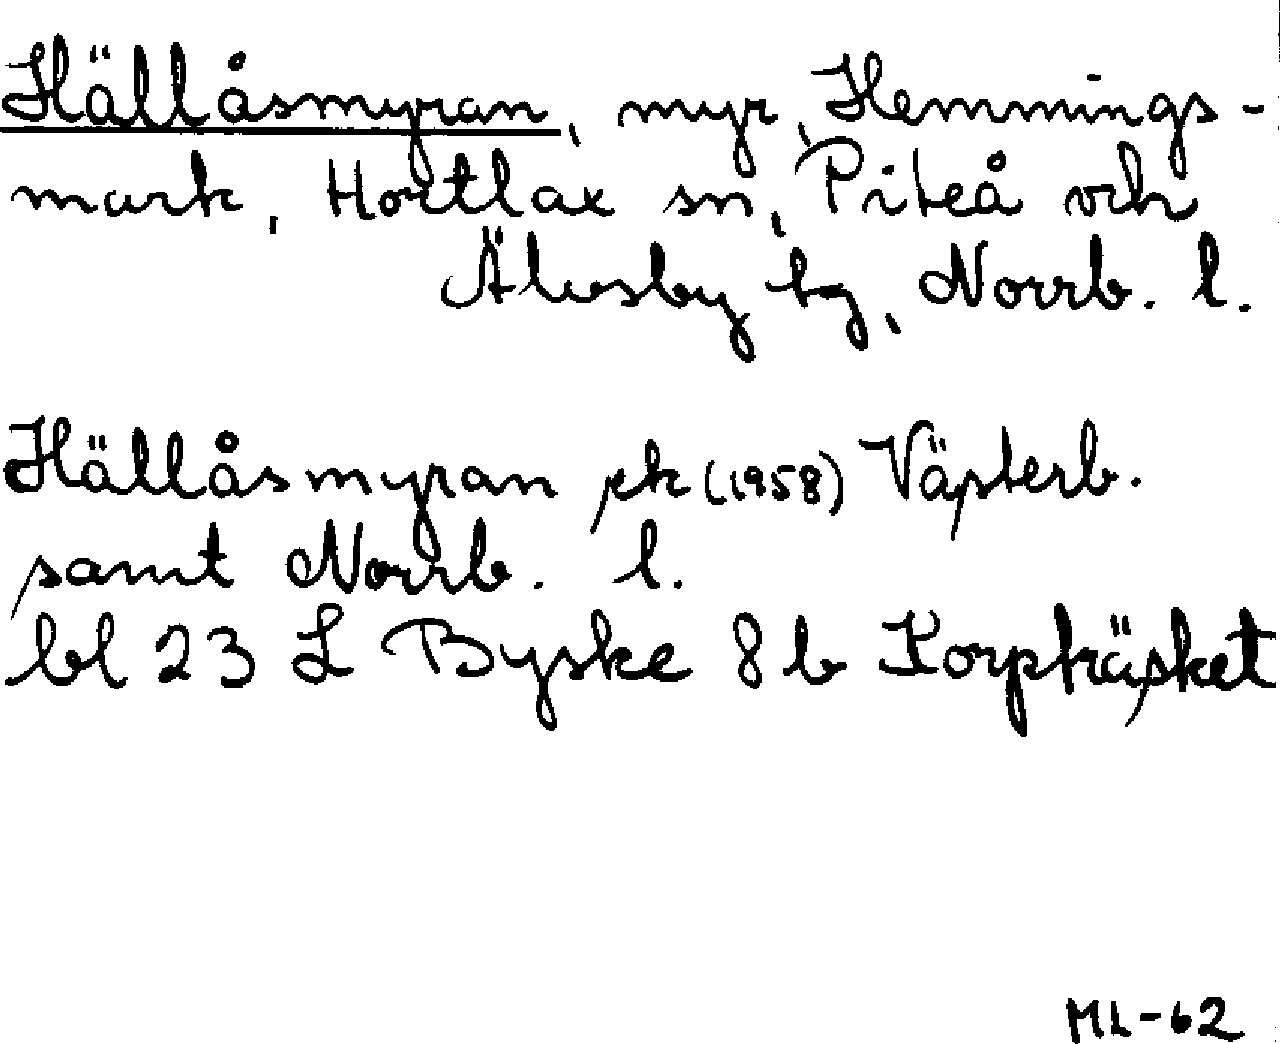 Hällåsmyran, myr, Hemmings-
mark, Hortlax sn, Piteå och
Älvsby tg, Norrb. l.
Hällåsmyran ek (1958) Västerb.
samt Norrb. l.
bl 23 L Byske 8 b Korpträsket
ML-62